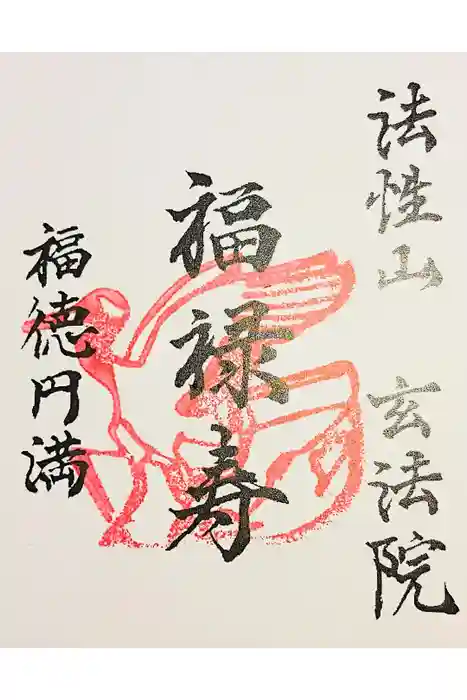 法性山 玄法院
福禄寿
福徳円満